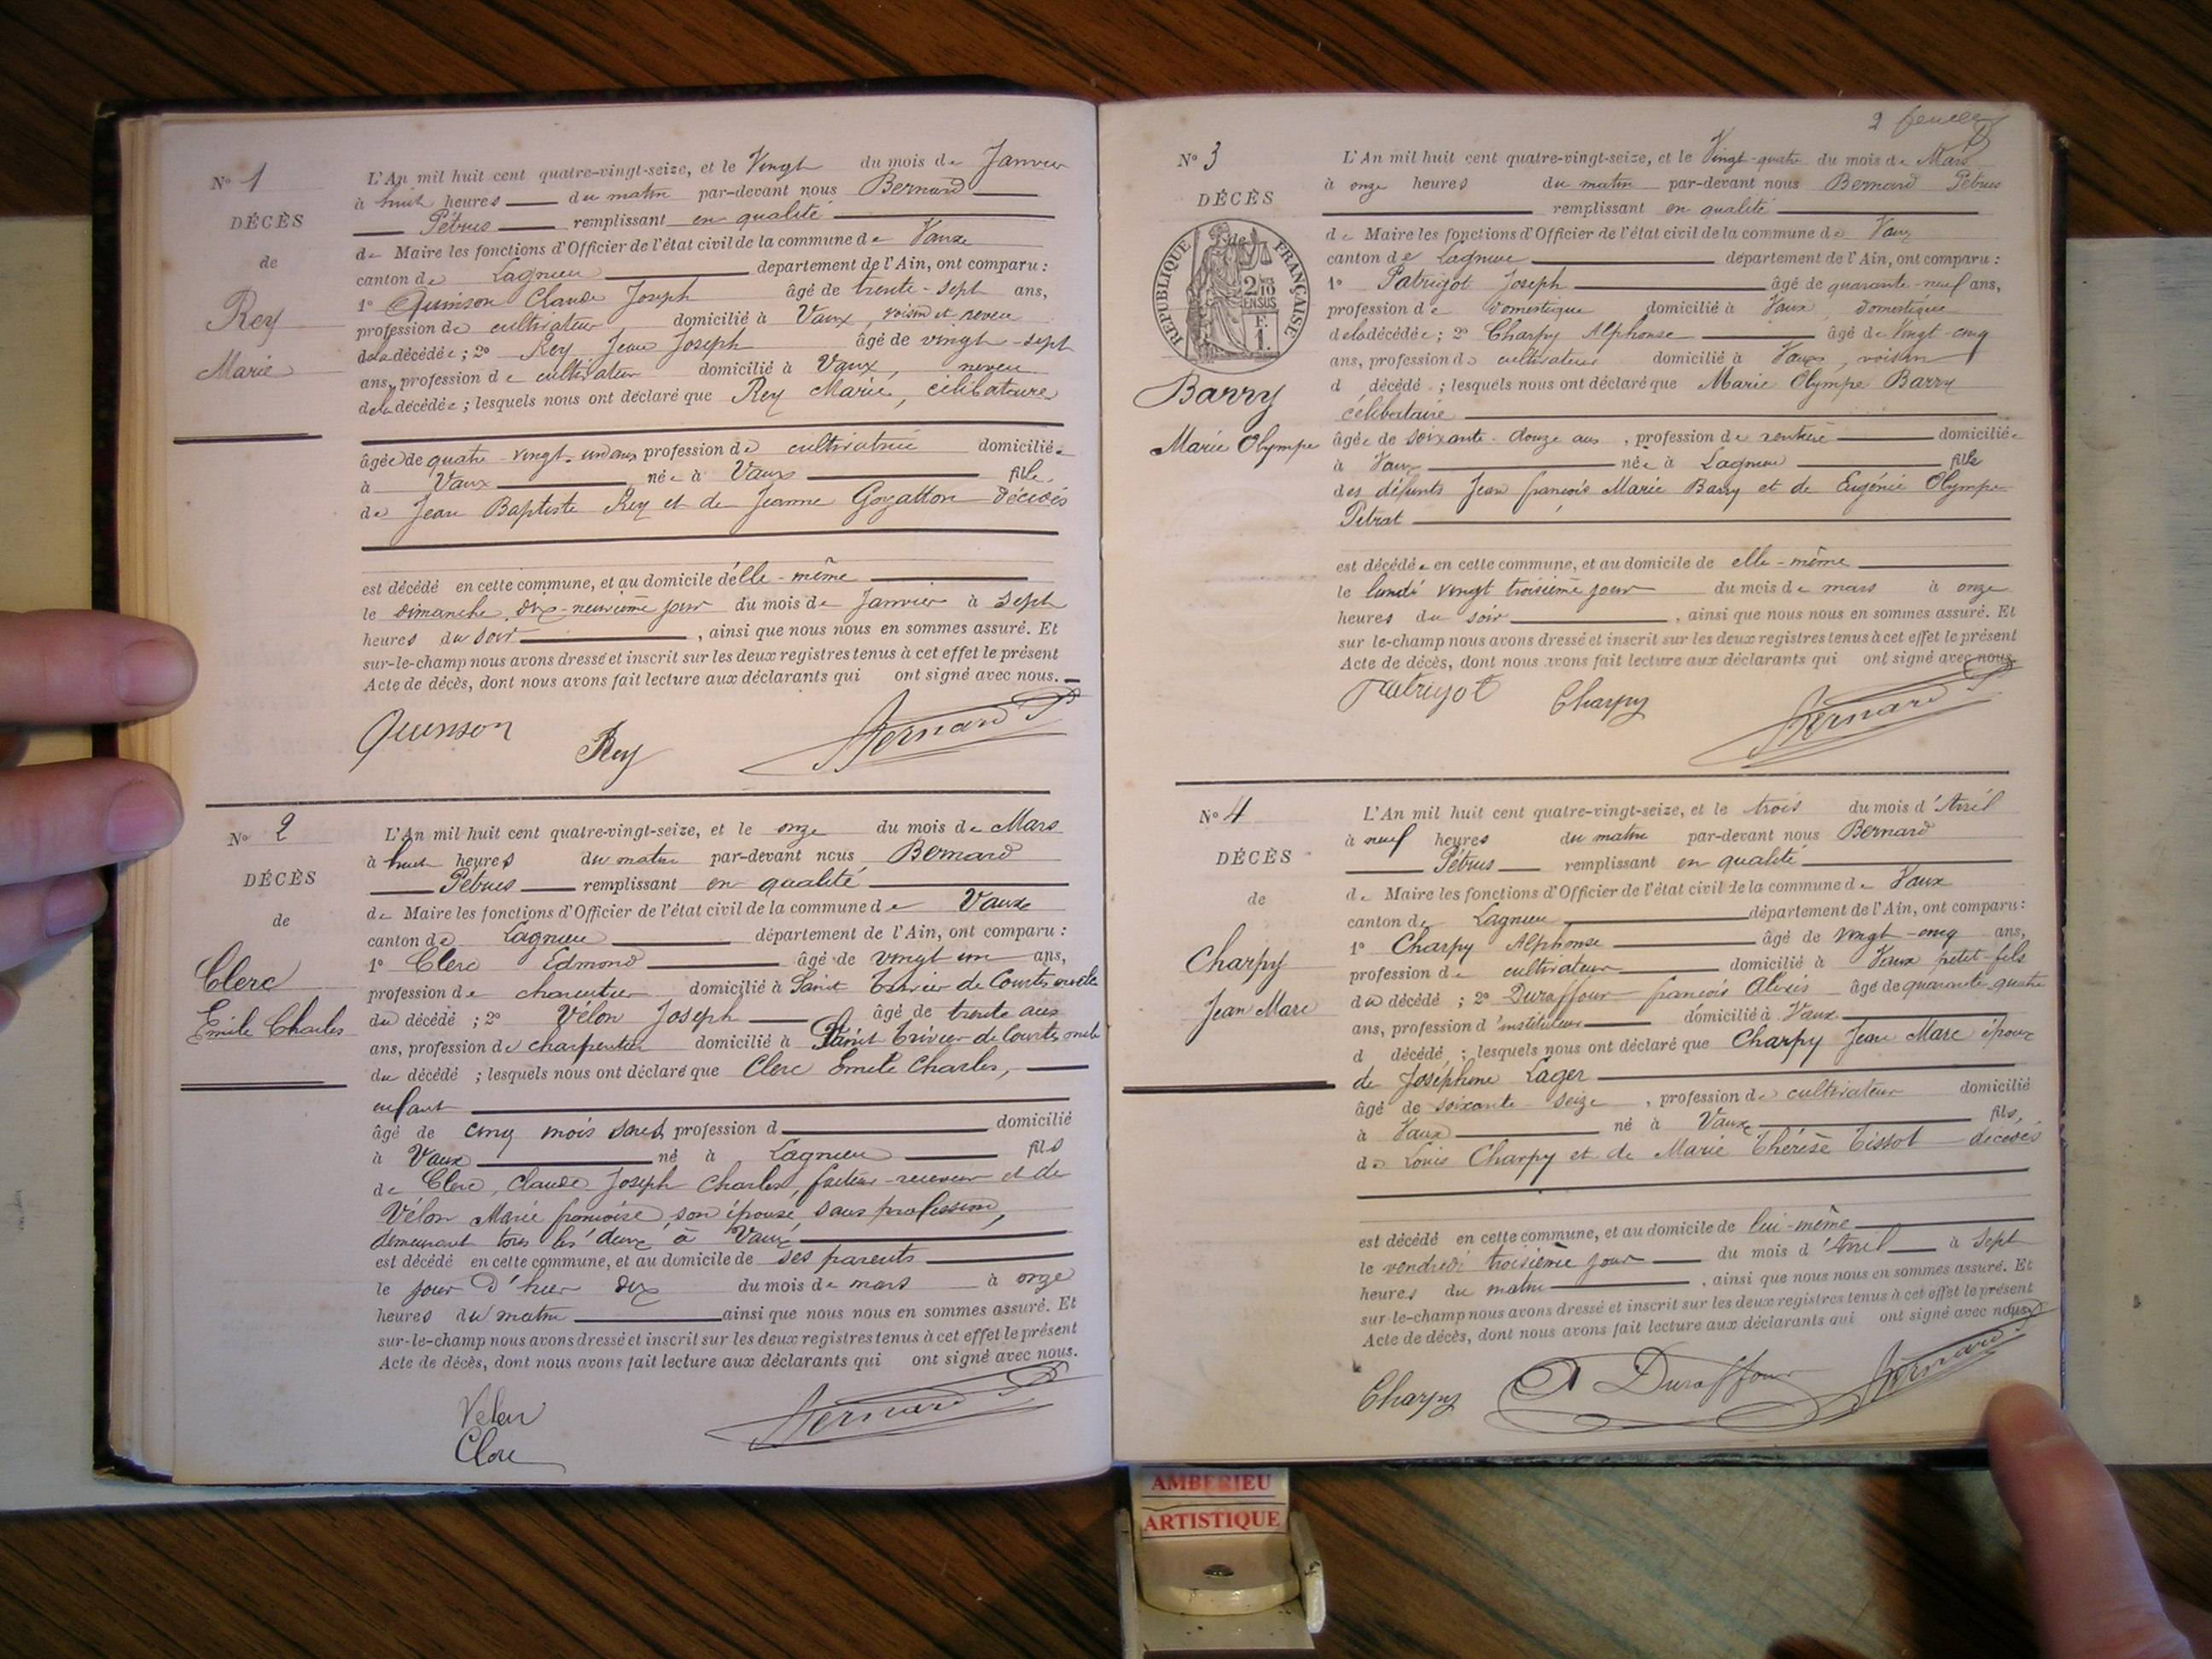 N° 1
DÉCÈS
de
Rey
Marie
L'An mil huit cent quatre-vingt-seize, et le Vingt du mois de Janvier
à huit heures du matin par-devant nous Bernard
Pétrus remplissant en qualité
de Maire les fonctions d'Officier de l'état civil de la commune de Vaux
canton de Lagnieu département de l'Ain, ont comparu :
1° Quinson Claude Joseph âgé de trente-sept ans,
profession de cultivateur domicilié à Vaux, voisin et neveu
de la décédée ; 2° Rey Jean Joseph âgé de vingt-sept
ans, profession de cultivateur domicilié à Vaux, neveu
de la décédée ; lesquels nous ont déclaré que Rey Marie, célibataire
âgée de quatre-vingt-un ans profession de cultivatrice domiciliée
à Vaux née à Vaux fille
de Jean Baptiste Rey et de Jeanne Goyatton décédés
est décédé en cette commune, et au domicile d'elle-même
le dimanche dix-neuvième jour du mois de Janvier à sept
heures du soir, ainsi que nous nous en sommes assuré. Et
sur-le-champ nous avons dressé et inscrit sur les deux registres tenus à cet effet le présent
Acte de décès, dont nous avons fait lecture aux déclarants qui ont signé avec nous.
Quinson Rey Bernard P
N° 2
DÉCÈS
de
Clerc
Emile Charles
L'An mil huit cent quatre-vingt-seize, et le onze du mois de Mars
à huit heures du matin par-devant nous Bernard
Pétrus remplissant en qualité
de Maire les fonctions d'Officier de l'état civil de la commune de Vaux
canton de Lagnieu département de l'Ain, ont comparu :
1° Clerc Edmond âgé de vingt un ans,
profession de charcutier domicilié à Saint Trivier de Courtes oncle
du décédé ; 2° Vélon Joseph âgé de trente ans
ans, profession de charpentier domicilié à Saint Trivier de Courtes oncle
du décédé ; lesquels nous ont déclaré que Clerc Emile Charles,
enfant
âgé de cinq mois sans profession d domicilié
à Vaux né à Lagnieu fils
de Clerc, Claude Joseph Charles, facteur-receveur et de
Vélon Marie françoise son épouse, sans profession,
demeurant tous les deux à Vaux
est décédé en cette commune, et au domicile de ses parents
le jour d'hier dix du mois de mars à onze
heures du matin ainsi que nous nous en sommes assuré. Et
sur-le-champ nous avons dressé et inscrit sur les deux registres tenus à cet effet le présent
Acte de décès, dont nous avons fait lecture aux déclarants qui ont signé avec nous.
Velon Bernard P
Clerc
2
N° 3
DÉCÈS
de
RÉPUBLIQUE FRANÇAISE
2/10 EN SUS
F.
1.
Barry
Marie Olympe
L'An mil huit cent quatre-vingt-seize, et le Vingt-quatre du mois de Mars
à onze heures du matin par-devant nous Bernard Pétrus
remplissant en qualité
de Maire les fonctions d'Officier de l'état civil de la commune de Vaux
canton de Lagnieu département de l'Ain, ont comparu :
1° Patrigot Joseph âgé de quarante-neuf ans,
profession de domestique domicilié à Vaux, domestique
de la décédée ; 2° Charpy Alphonse âgé de Vingt-cinq
ans, profession de cultivateur domicilié à Vaux, voisin
d décédé ; lesquels nous ont déclaré que Marie Olympe Barry
célibataire
âgée de soixante-douze ans, profession de rentière domiciliée
à Vaux née à Lagnieu fille
des défunts Jean françois Marie Barry et de Eugénie Olympe
Pétrat
est décédée en cette commune, et au domicile de elle-même
le lundi vingt troisième jour du mois de mars à onze
heures du soir, ainsi que nous nous en sommes assuré. Et
sur le-champ nous avons dressé et inscrit sur les deux registres tenus à cet effet le présent
Acte de décès, dont nous avons fait lecture aux déclarants qui ont signé avec nous
Patrigot Charpy Bernard P
N° 4
DÉCÈS
de
Charpy
Jean Marc
L'An mil huit cent quatre-vingt-seize, et le trois du mois d'Avril
à neuf heures du matin par-devant nous Bernard
Pétrus remplissant en qualité
de Maire les fonctions d'Officier de l'état civil de la commune de Vaux
canton de Lagnieu département de l'Ain, ont comparu :
1° Charpy Alphonse âgé de vingt-cinq ans,
profession de cultivateur domicilié à Vaux petit-fils
du décédé ; 2° Duraffour françois Alexis âgé de quarante-quatre
ans, profession d'instituteur domicilié à Vaux
d décédé ; lesquels nous ont déclaré que Charpy Jean Marc époux
de Joséphine Lager
âgé de soixante-seize, profession de cultivateur domicilié
à Vaux né à Vaux fils,
de Louis Charpy et de Marie Thérèse Tissot décédés
est décédé en cette commune, et au domicile de lui-même
le vendredi troisième jour du mois d'Avril à sept
heures du matin, ainsi que nous nous en sommes assuré. Et
sur-le-champ nous avons dressé et inscrit sur les deux registres tenus à cet effet le présent
Acte de décès, dont nous avons fait lecture aux déclarants qui ont signé avec nous
Charpy A Duraffour Bernard P
AMBERIEU
ARTISTIQUE